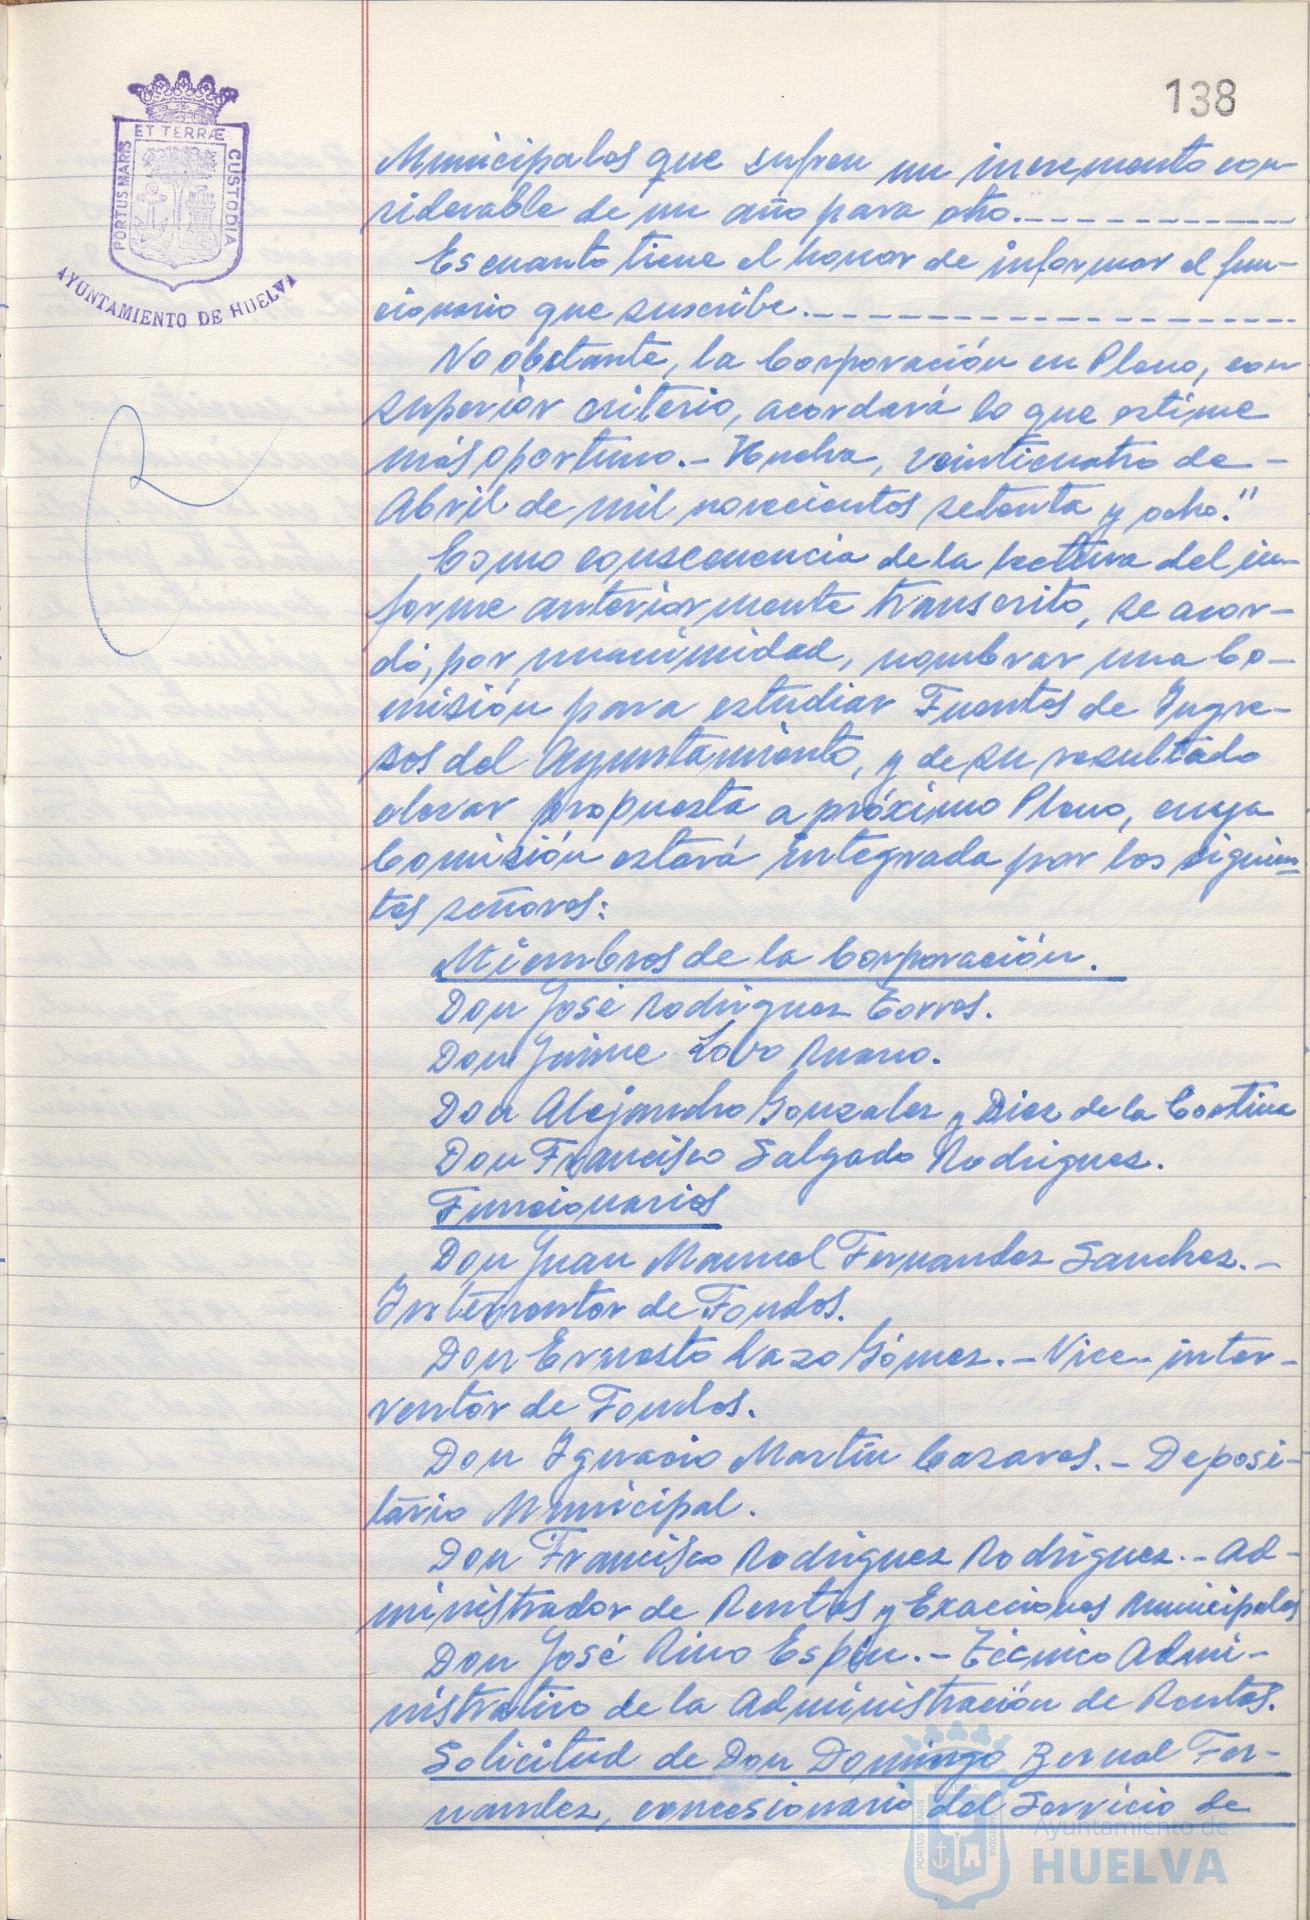 138
ET TERRÆ
PORTUS MARIS
CUSTODIA
AYUNTAMIENTO DE HUELVA
Municipales que sufren un incremento con-
siderable de un año para otro.
Es cuanto tiene el honor de informar el fun-
cionario que suscribe.
No obstante, la Corporación en Pleno, con
superior criterio, acordará lo que estime
más oportuno.- Huelva, veinticuatro de-
Abril de mil novecientos setenta y ocho."
Como consecuencia de la lectura del in-
forme anteriormente transcrito, se acor-
dó, por unanimidad, nombrar una Co-
misión para estudiar Fuentes de Ingre-
sos del Ayuntamiento, y de su resultado
elevar propuesta a próximo Pleno, cuya
Comisión estará integrada por los siguien-
tes señores:
Miembros de la Corporación.
Don José Rodriguez Torres.
Don Jaime Lobo Ruano.
Don Alejandro Gonzalez y Diez de la Cortina
Don Francisco Salgado Rodriguez.
Funcionarios
Don Juan Manuel Fernandez Sanchez.-
Interventor de Fondos.
Don Ernesto Lazo Gómez.- Vice-inter-
ventor de Fondos.
Don Ignacio Martín Cazares.- Deposi-
tário Municipal.
Don Francisco Rodriguez Rodriguez.- Ad-
ministrador de Rentas y Exacciones Municipales
Don José Pino Espin.- Técnico Admi-
nistrativo de la Administración de Rentas.
Solicitud de Don Domingo Bernal Fer-
nandez, concesionario del Servicio de
Ayuntamiento de
HUELVA